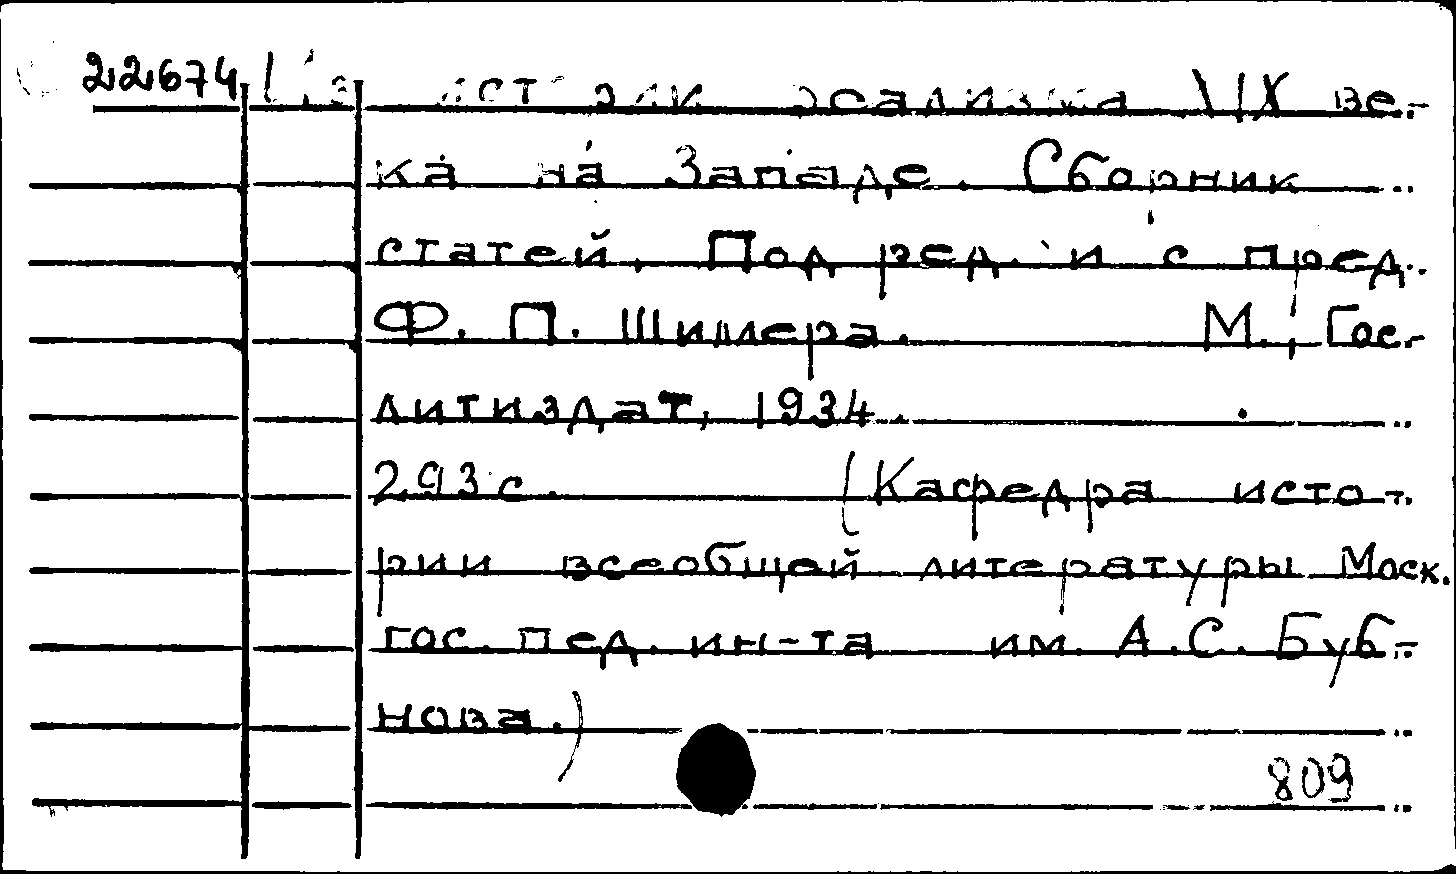 22674 Из истории реализма XIX ве-
ка на Западе. Сборник
статей. Под ред. и с пред.
Ф. П. Шиллера. М., Гос-
литиздат, 1934.
293 с. (Кафедра исто-
рии всеобщей литературы Моск.
гос. пед. ин-та им. А.С. Буб-
нова.)
809